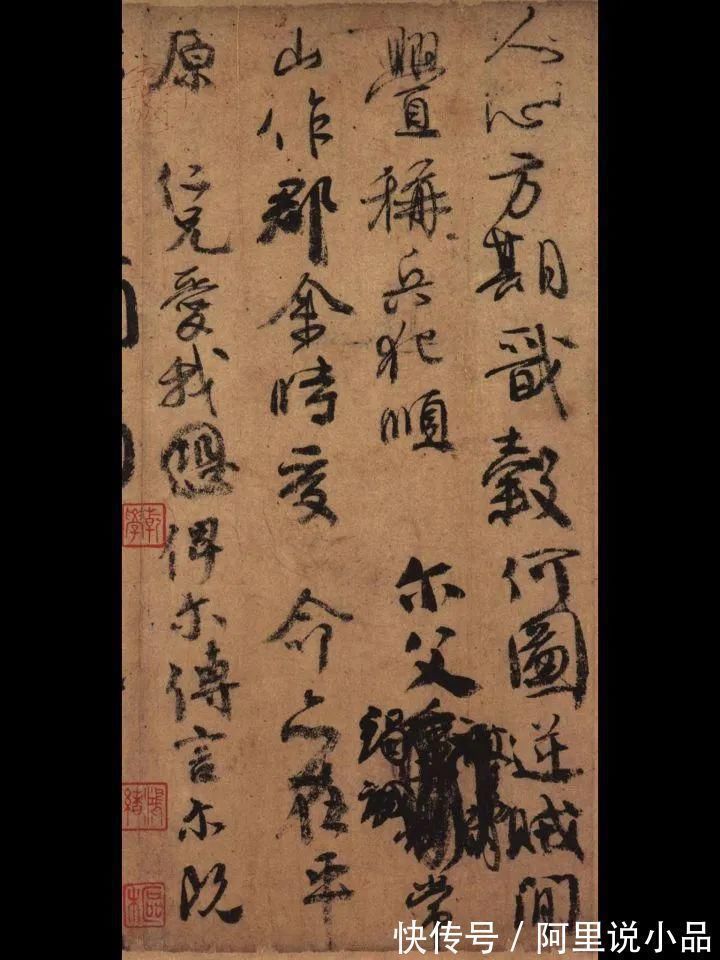 人心方期戩穀何圖逆賊閒
舋稱兵犯順 尔父竭誠常
山作郡余時受 命亦在平
原 仁兄愛我俾尔傳言尔既
乾學
快传号 / 阿里说小品